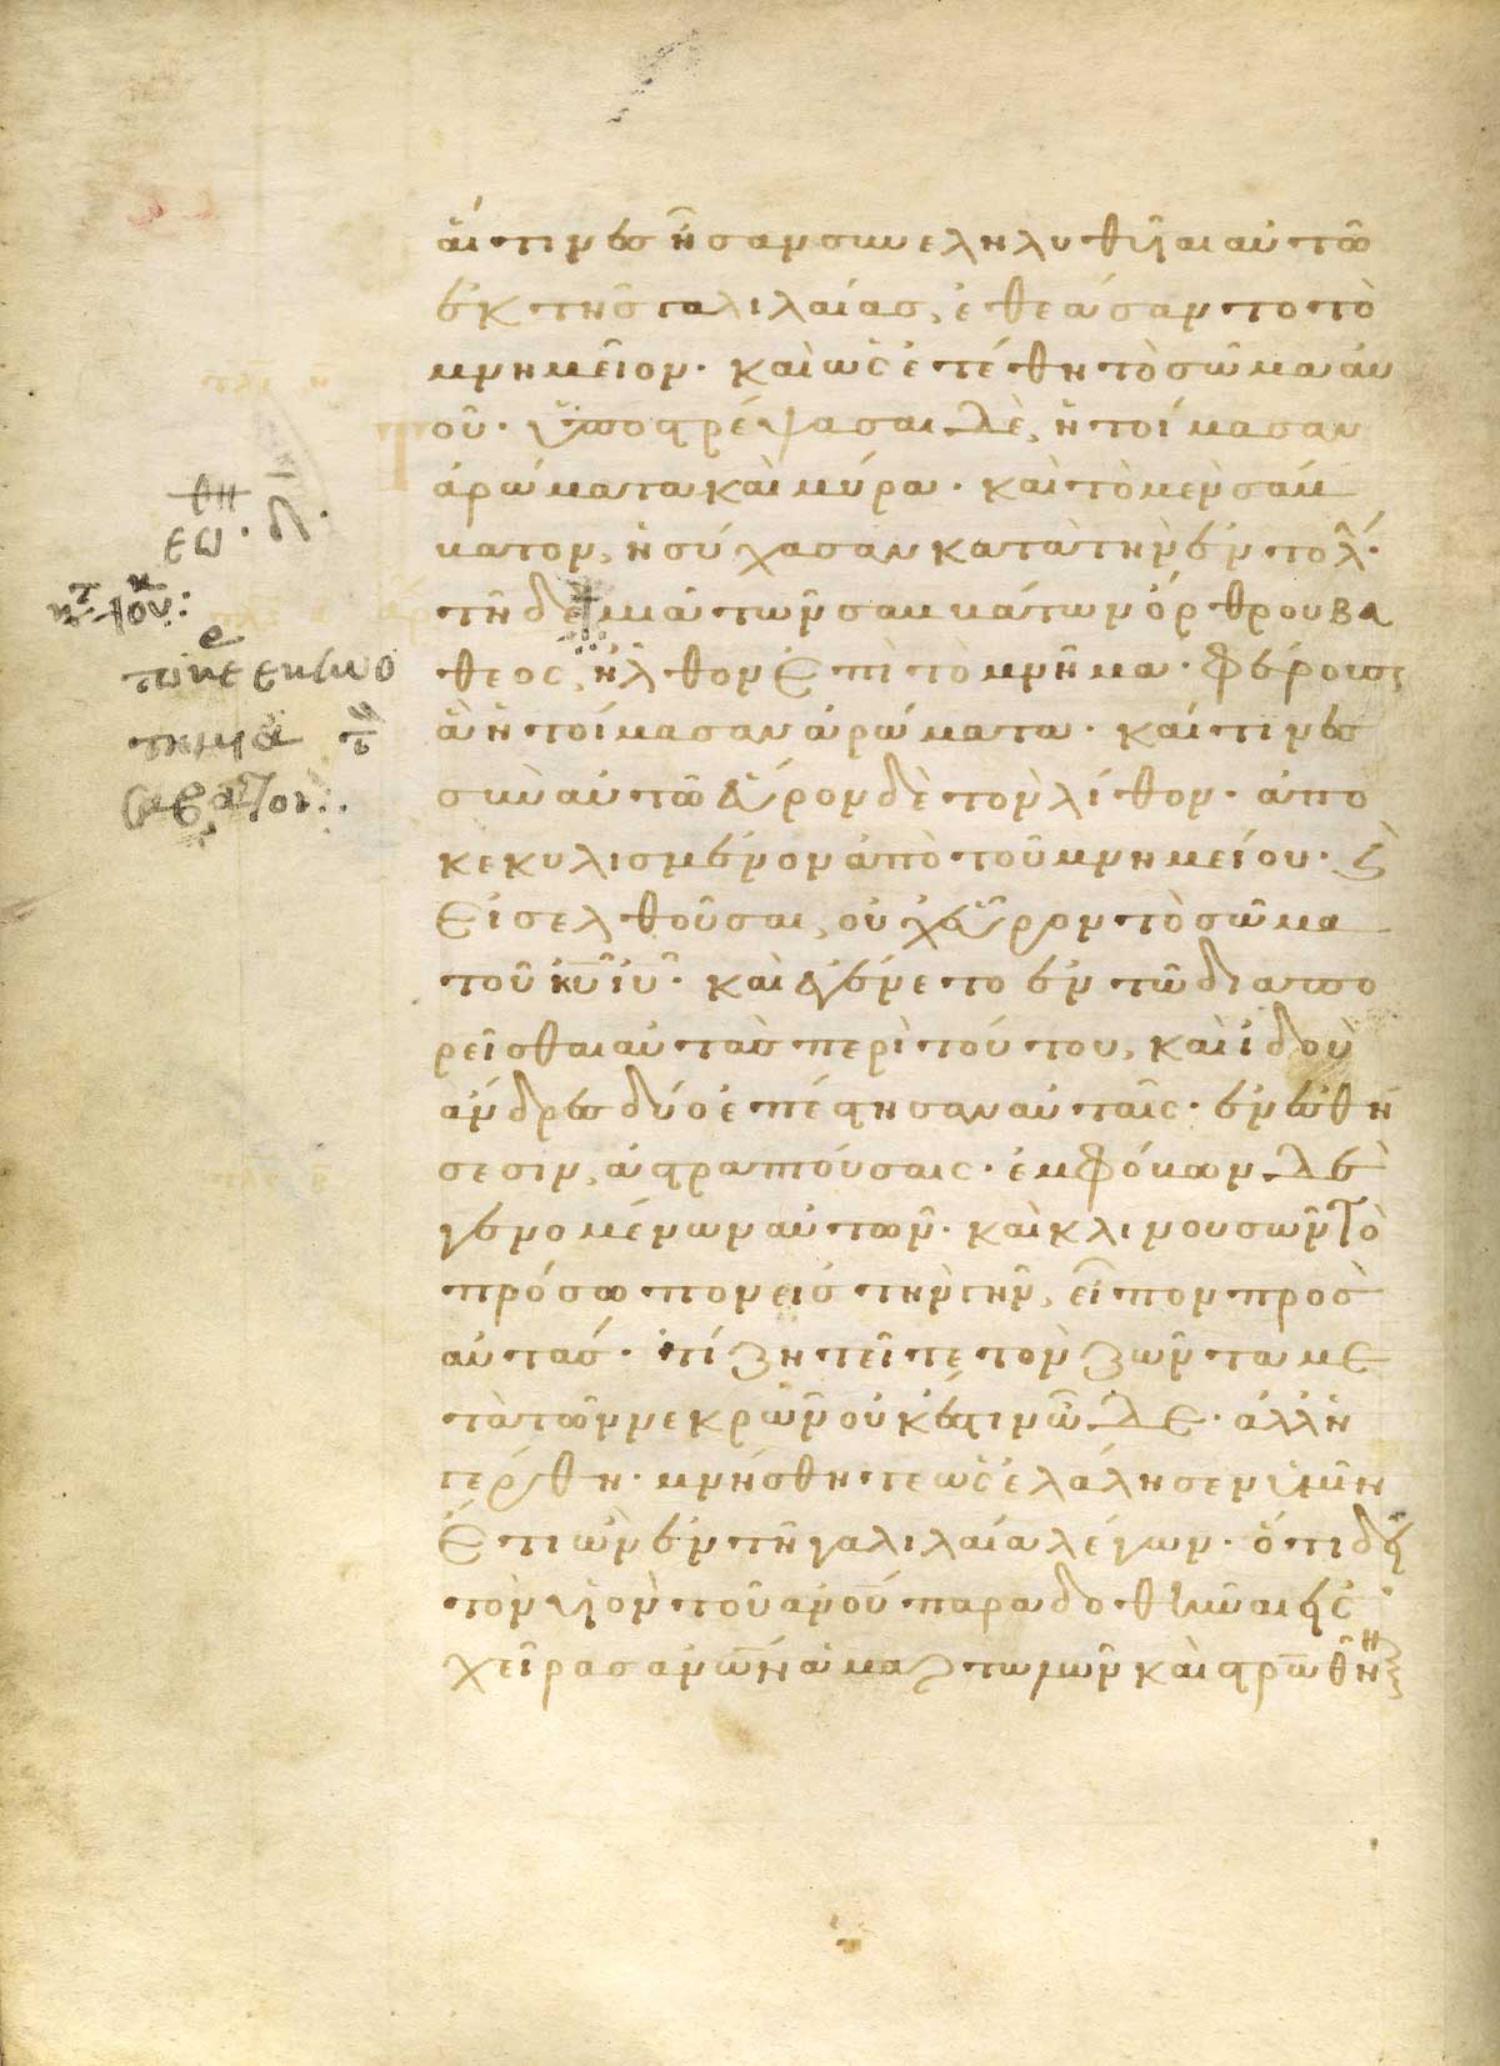 αἵτινες ἦσαν συνεληλυθυῖαι αὐτῶ
ἐκ τῆς γαλιλαίας, ἐθεάσαντο τὸ
μνημεῖον· καὶ ὡς ἐτέθη τὸ σῶμα αὐ
οῦ· ὑποστρέψασαι δὲ, ἡτοίμασαν
ἀρώματα καὶ μύρα· καὶ τὸ μὲν σάβ
βατον, ἡσύχασαν κατὰ τὴν ἐντολ·
τῆ δὲ μιᾶ τῶν σαββάτων ὄρθρου βα
θεος, ἦλθον ἐπὶ τὸ μνῆμα· φέρουσ
ἃ ἡτοίμασαν ἀρώματα· καί τινες
σὺν αὐτῶ εὗρον δὲ τὸν λίθον· ἀπο
κεκυλισμένον ἀπὸ τοῦ μνημείου· ϗ
εἰσελθοῦσαι, οὐχ εὗρον τὸ σῶμα
τοῦ κυ ιυ· καὶ ἐγένετο ἐν τῶ διαπο
ρεῖσθαι αὐτὰς περὶ τούτου, καὶ ἰδοὺ
ἄνδρες δύο ἐπέστησαν αὐταῖς· ἐν ἐσθή
σεσιν, ἀστραπτούσαις· ἐμφόβων δὲ
γενομένων αὐτῶν· καὶ κλινουσῶν τὸ
πρόσωπον εἰς τὴν γῆν, εἶπον πρὸς
αὐτάς· τί ζητεῖτε τὸν ζῶντα με
τὰ τῶν νεκρῶν οὐκ ἔστιν ὧδε· ἀλλ ἠ
γέρθη· μνήσθητε ὡς ἐλάλησεν ὑμῖν
ἔτι ὢν ἐν τῆ γαλιλαία λέγων· ὅτι δεῖ
τὸν υἱὸν τοῦ ανου παραδοθῆναι εἰς
χεῖρας ανων ἁμαρτωλῶν καὶ στρωθῆν